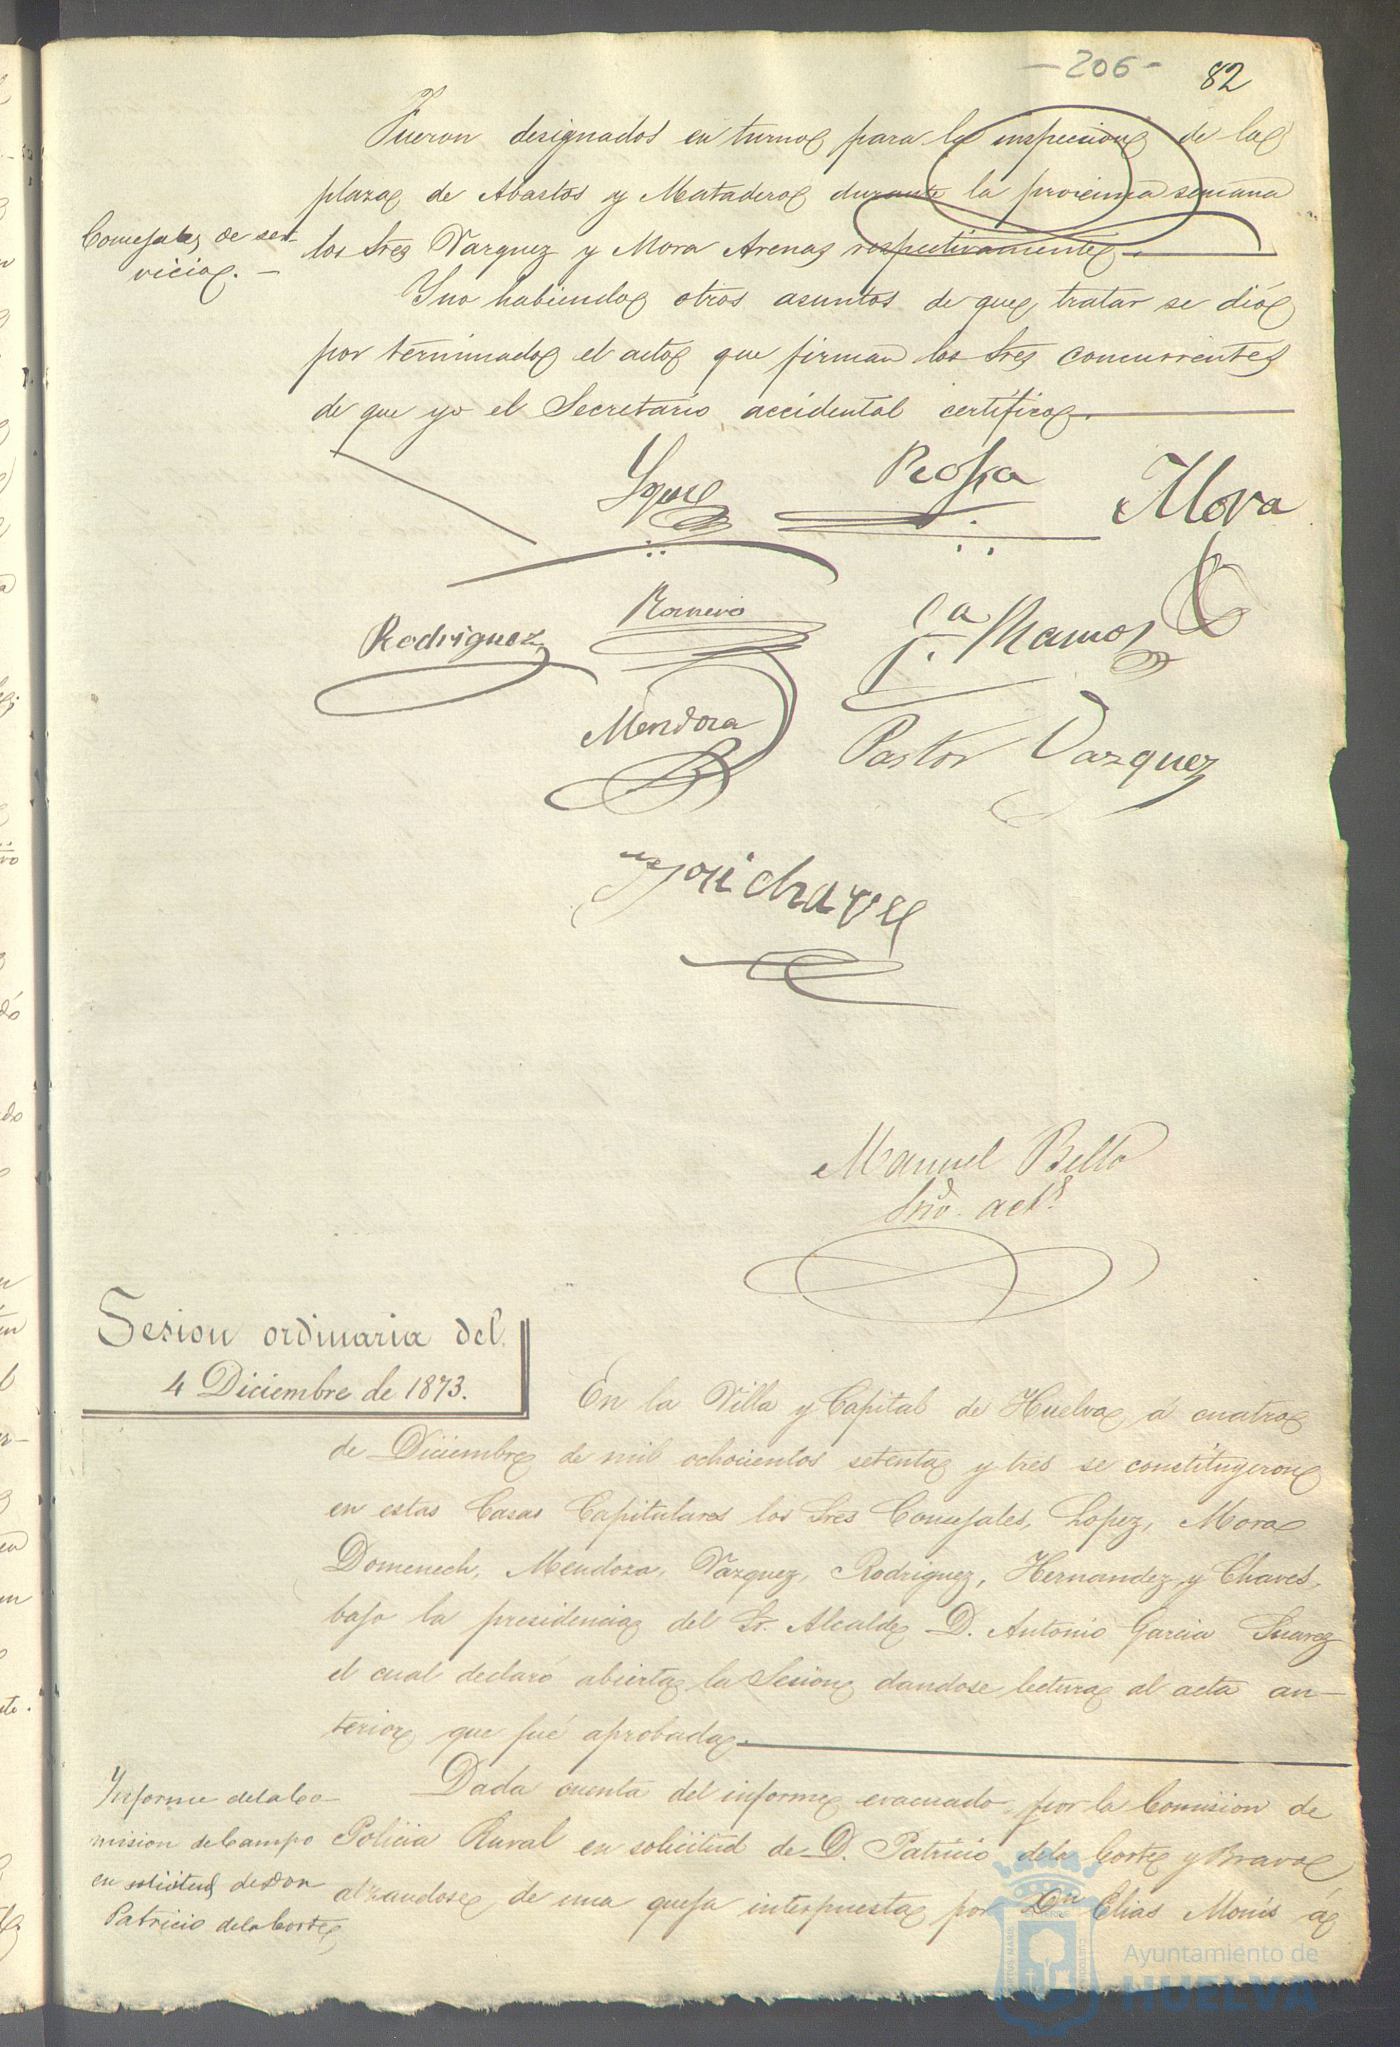 - 206 -
82
Fueron designados en turno para la inspeccion de la
plaza de Abastos y Matadero durante la procsima semana
los Sres Vazquez y Mora Arenas respectivamente.
Concejales de ser-
vicio. -
Y no habiendo otros asuntos de que tratar se dió
por terminado el acto que firman los Sres concurrentes
de que yo el Secretario accidental certifico.
Mora
Rodriguez
Romero
Ramos
Mendoza
Pastor Vazquez
José Chaves
Manuel Bello
Srio. actl.
Sesion ordinaria del
4 Diciembre de 1873.
En la Villa y Capital de Huelva á cuatro
de Diciembre de mil ochocientos setenta y tres se constituyeron
en estas Casas Capitulares los Sres Concejales, Lopez, Mora
Domenech, Mendoza, Vazquez, Rodriguez, Hernandez y Chaves,
bajo la presidencia del Sr. Alcalde D. Antonio Garcia Suarez
el cual declaró abierta la Sesion dandose lectura al acta an-
terior que fué aprobada.
Informe de la Co-
mision de Campo
en solicitud de Don
Patricio de la Corte
Dada cuenta del informe evacuado por la Comision de
Policia Rural en solicitud de D. Patricio de la Corte y Bravo
alzandose de una queja interpuesta por Dn Elias Monis á
Ayuntamiento de
HUELVA